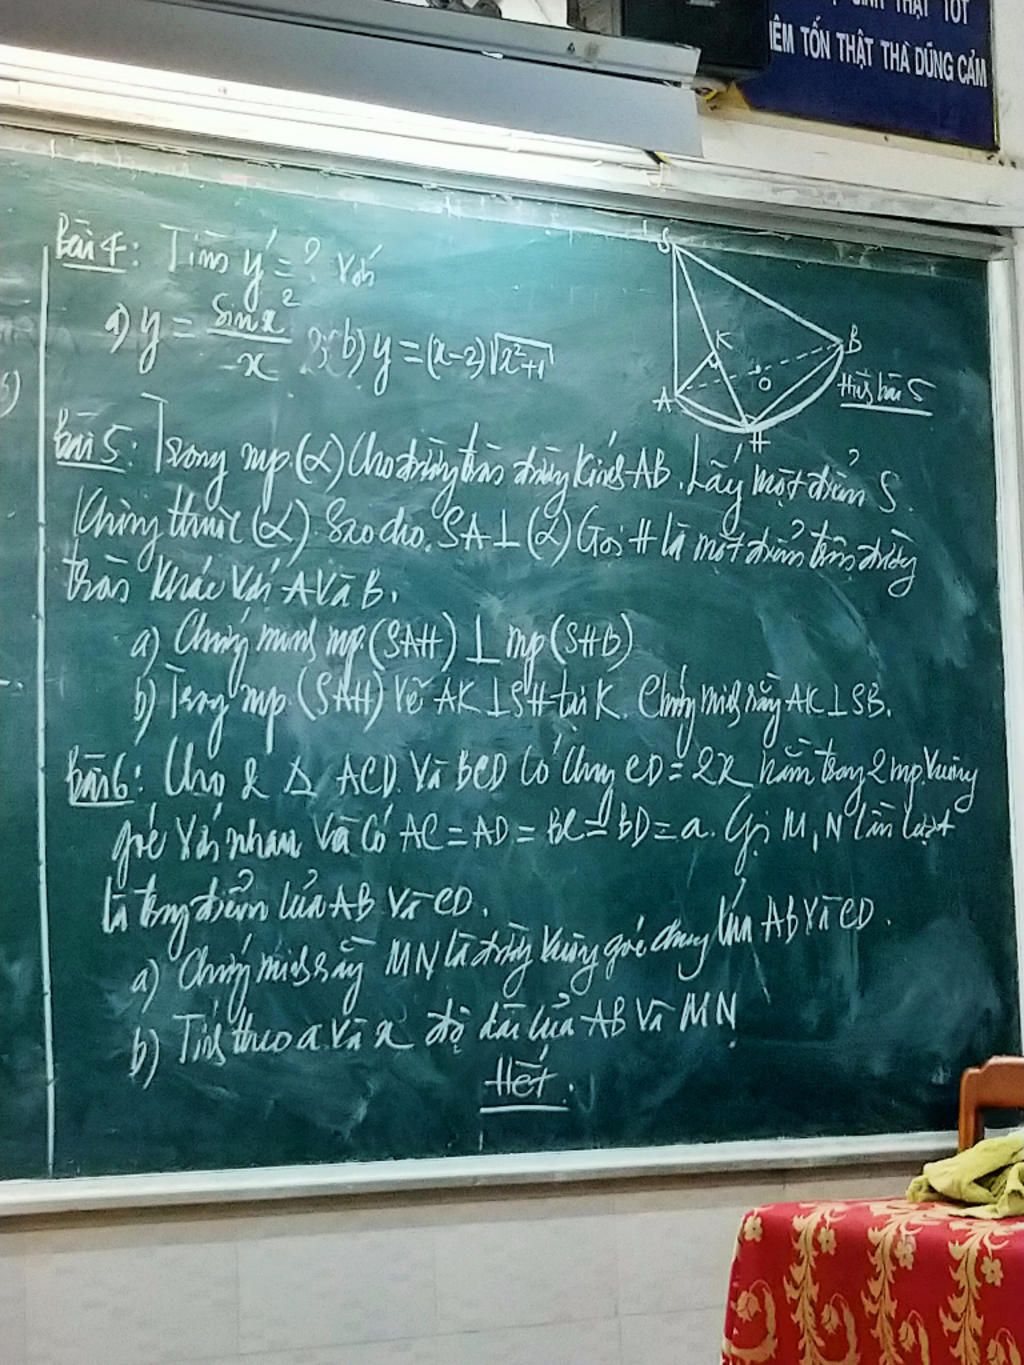 SINH THẬT TỐT
IÊM TỐN THẬT THÀ DŨNG CẢM
Bài 4: Tìm y' = ? Với
a) y = sinx² / x ; b) y = (x-2)√x²+1
S
K
B
O
A
H
Hình bài 5
Bài 5: Trong mp (α) Cho đường tròn đường Kính AB. Lấy một điểm S
Không thuộc (α) Sao cho SA ⊥ (α) Gọi H là một điểm trên đường
tròn Khác Với A Và B.
a) Chứng minh mp (SAH) ⊥ mp (SHB)
b) Trong mp (SAH) Vẽ AK ⊥ SH tại K. Chứng minh rằng AK ⊥ SB.
Bài 6: Cho 2 Δ ACD Và BCD Có Chung CD = 2x nằm trong 2 mp Vuông
góc Với nhau Và Có AC = AD = BC = BD = a. Gọi M, N lần lượt
là trung điểm Của AB Và CD.
a) Chứng minh rằng MN là đường Vuông góc chung Của AB Và CD.
b) Tính theo a Và x độ dài Của AB Và MN
Hết.